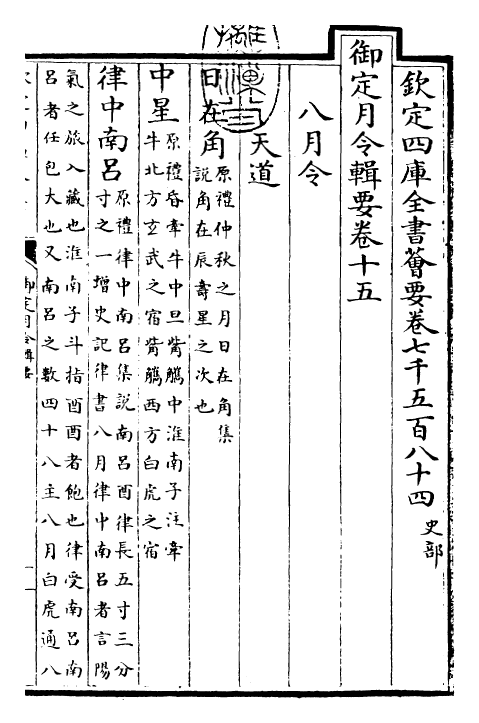 欽定四庫全書薈要卷七千五百八十四 史部
御定月令輯要卷十五
八月令
天道
日在角 原禮仲秋之月日在角集
說角在辰壽星之次也
中星 原禮昏牽牛中旦觜觿中淮南子注牽
牛北方玄武之宿觜觿西方白虎之宿
律中南呂 原禮律中南呂集說南呂酉律長五寸三分
寸之一增史記律書八月律中南呂者言陽
氣之旅入藏也淮南子斗指酉酉者飽也律受南呂南
呂者任包大也又南呂之數四十八主八月白虎通八
御定月令輯要
一